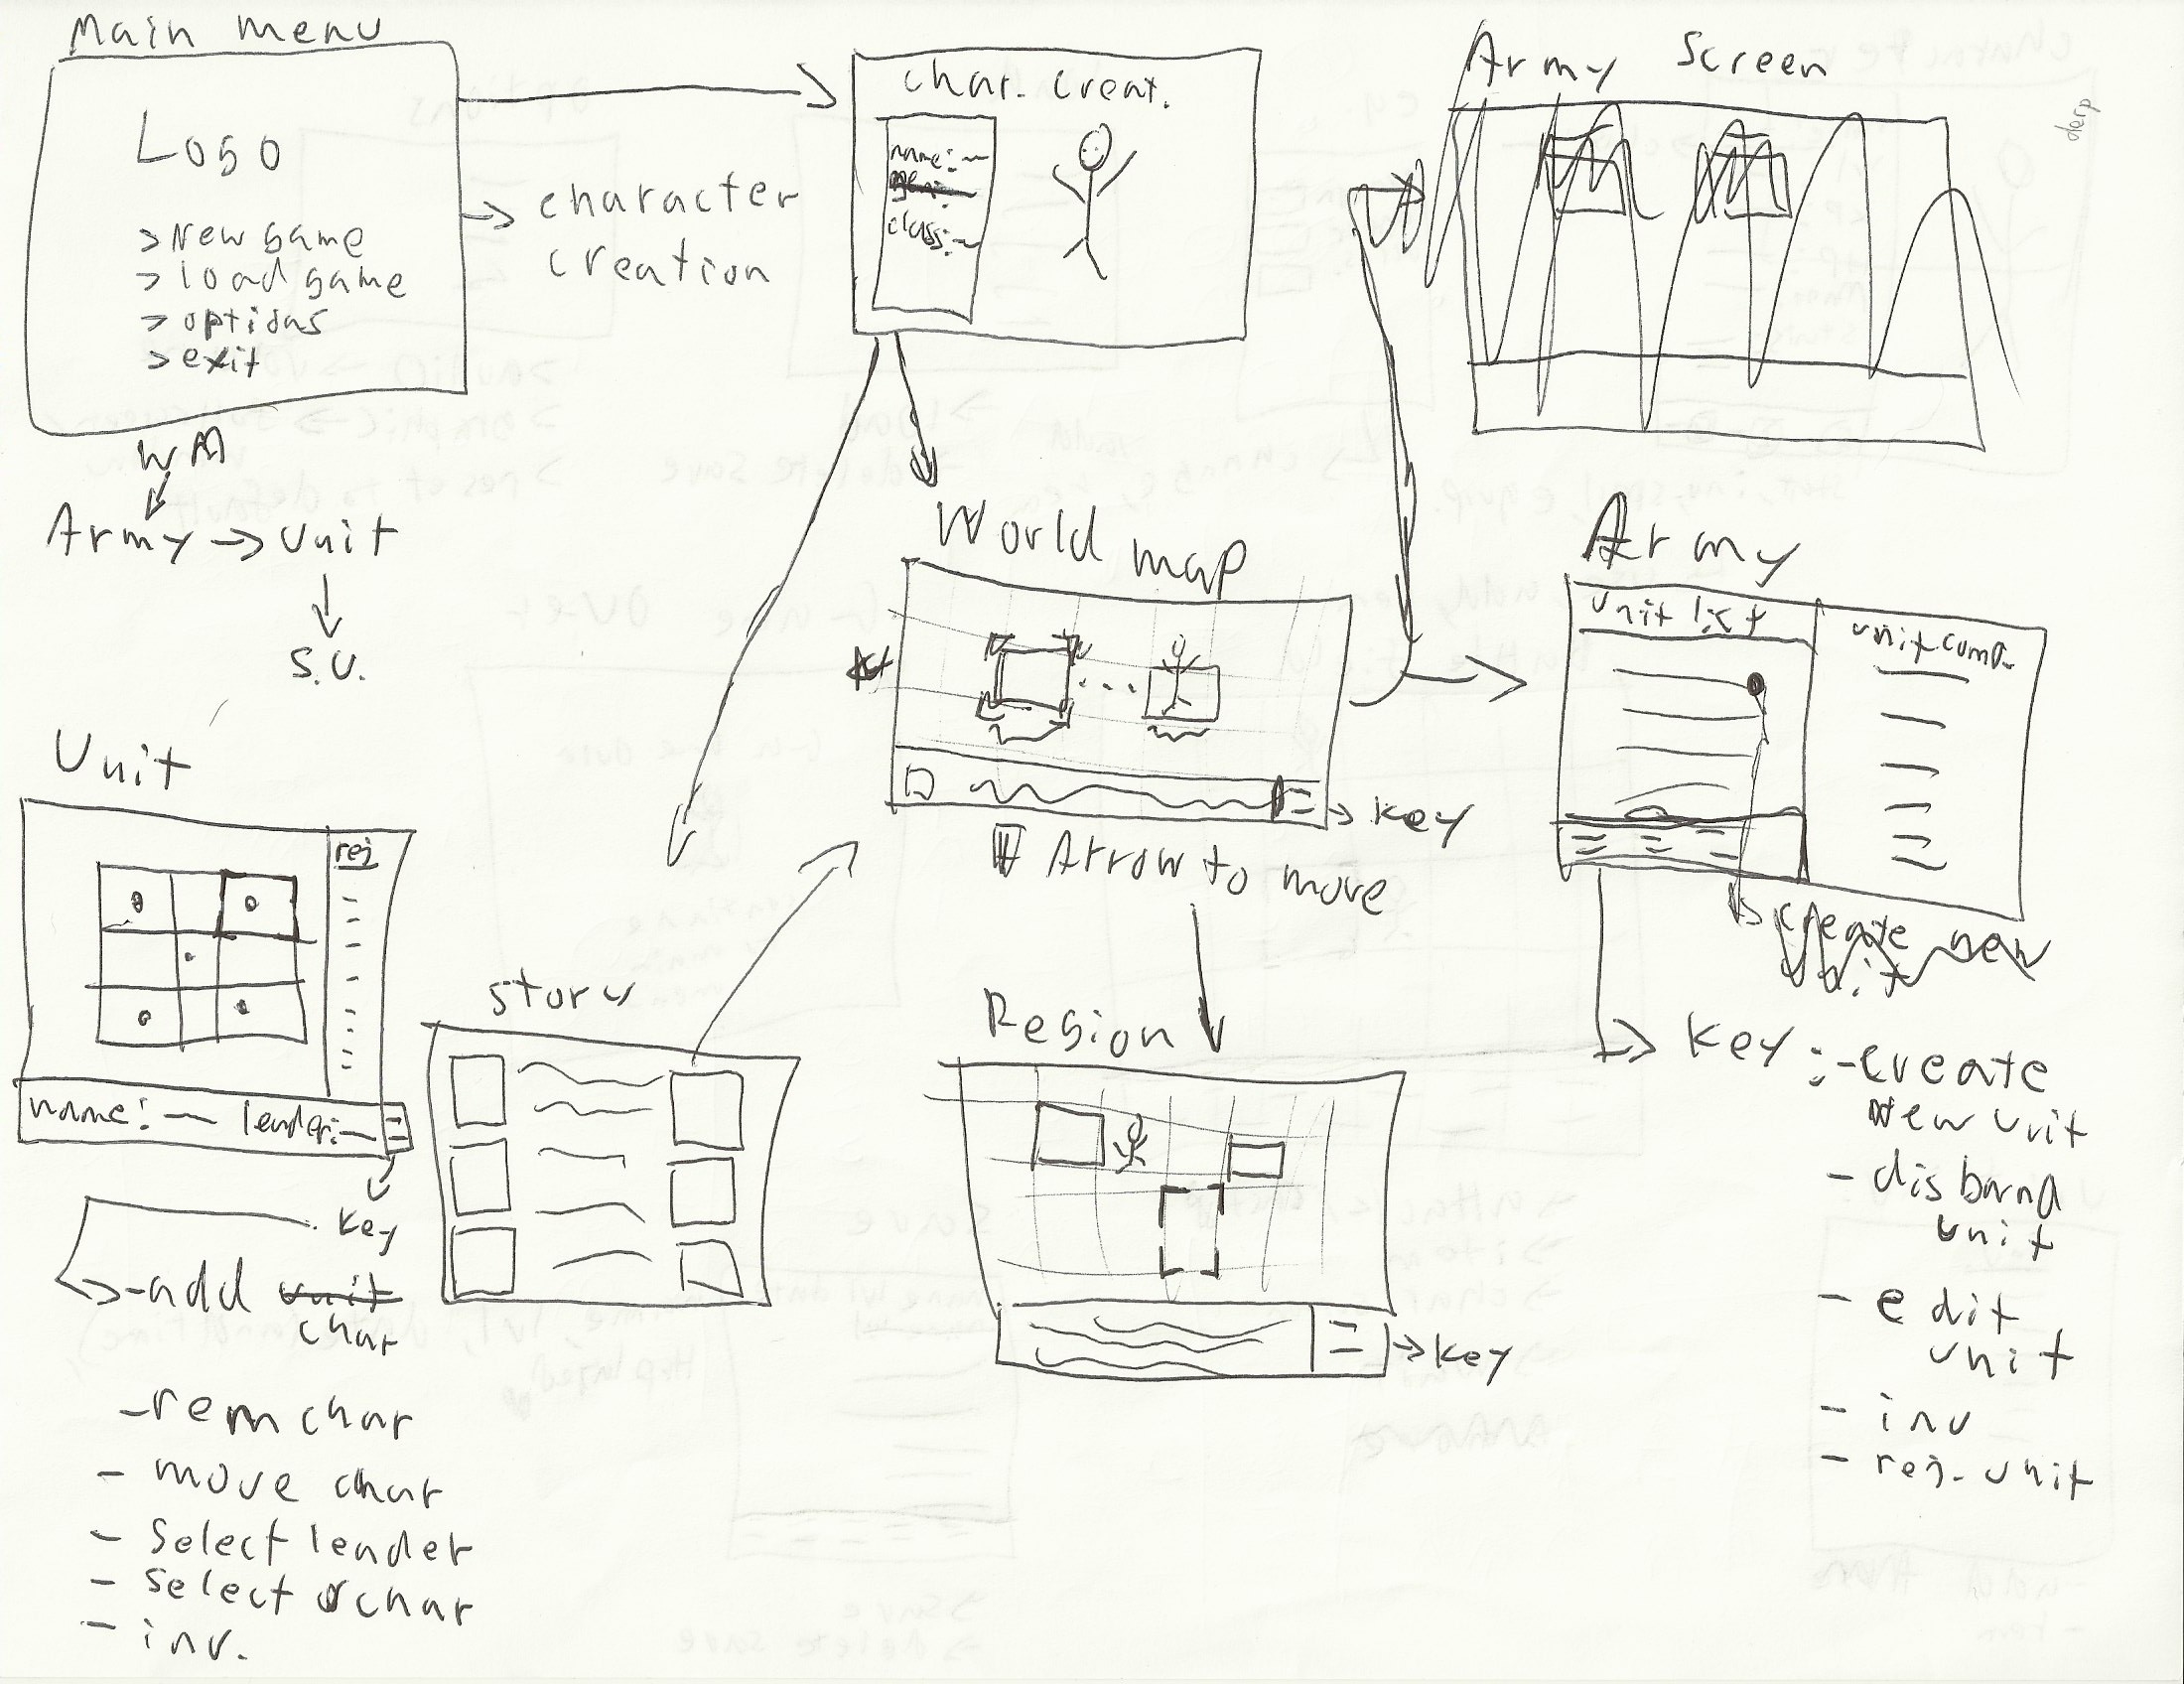 Main menu
Logo
> New game
> load game
> options
> exit
character
creation
char. creat.
name: —
class: —
Army Screen
derp
WM
Army → Unit
S.U.
World map
→ key
Arrow to move
Army
unit list
unit comp.
create new
unit
key: - create
New unit
- disband
unit
- edit
unit
- inv
- res. unit
Unit
res
name: — leader: —
key
- add unit
char
- rem char
- move char
- Select leader
- Select char
- inv.
story
Region
→ key